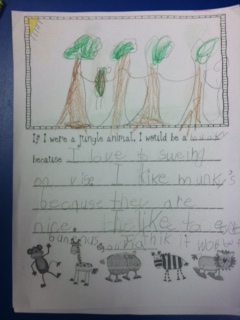 If I were a jungle animal, I would be a
because I love to sweing
on I like munky's
because they are
nice. The like to
bananas. I think it